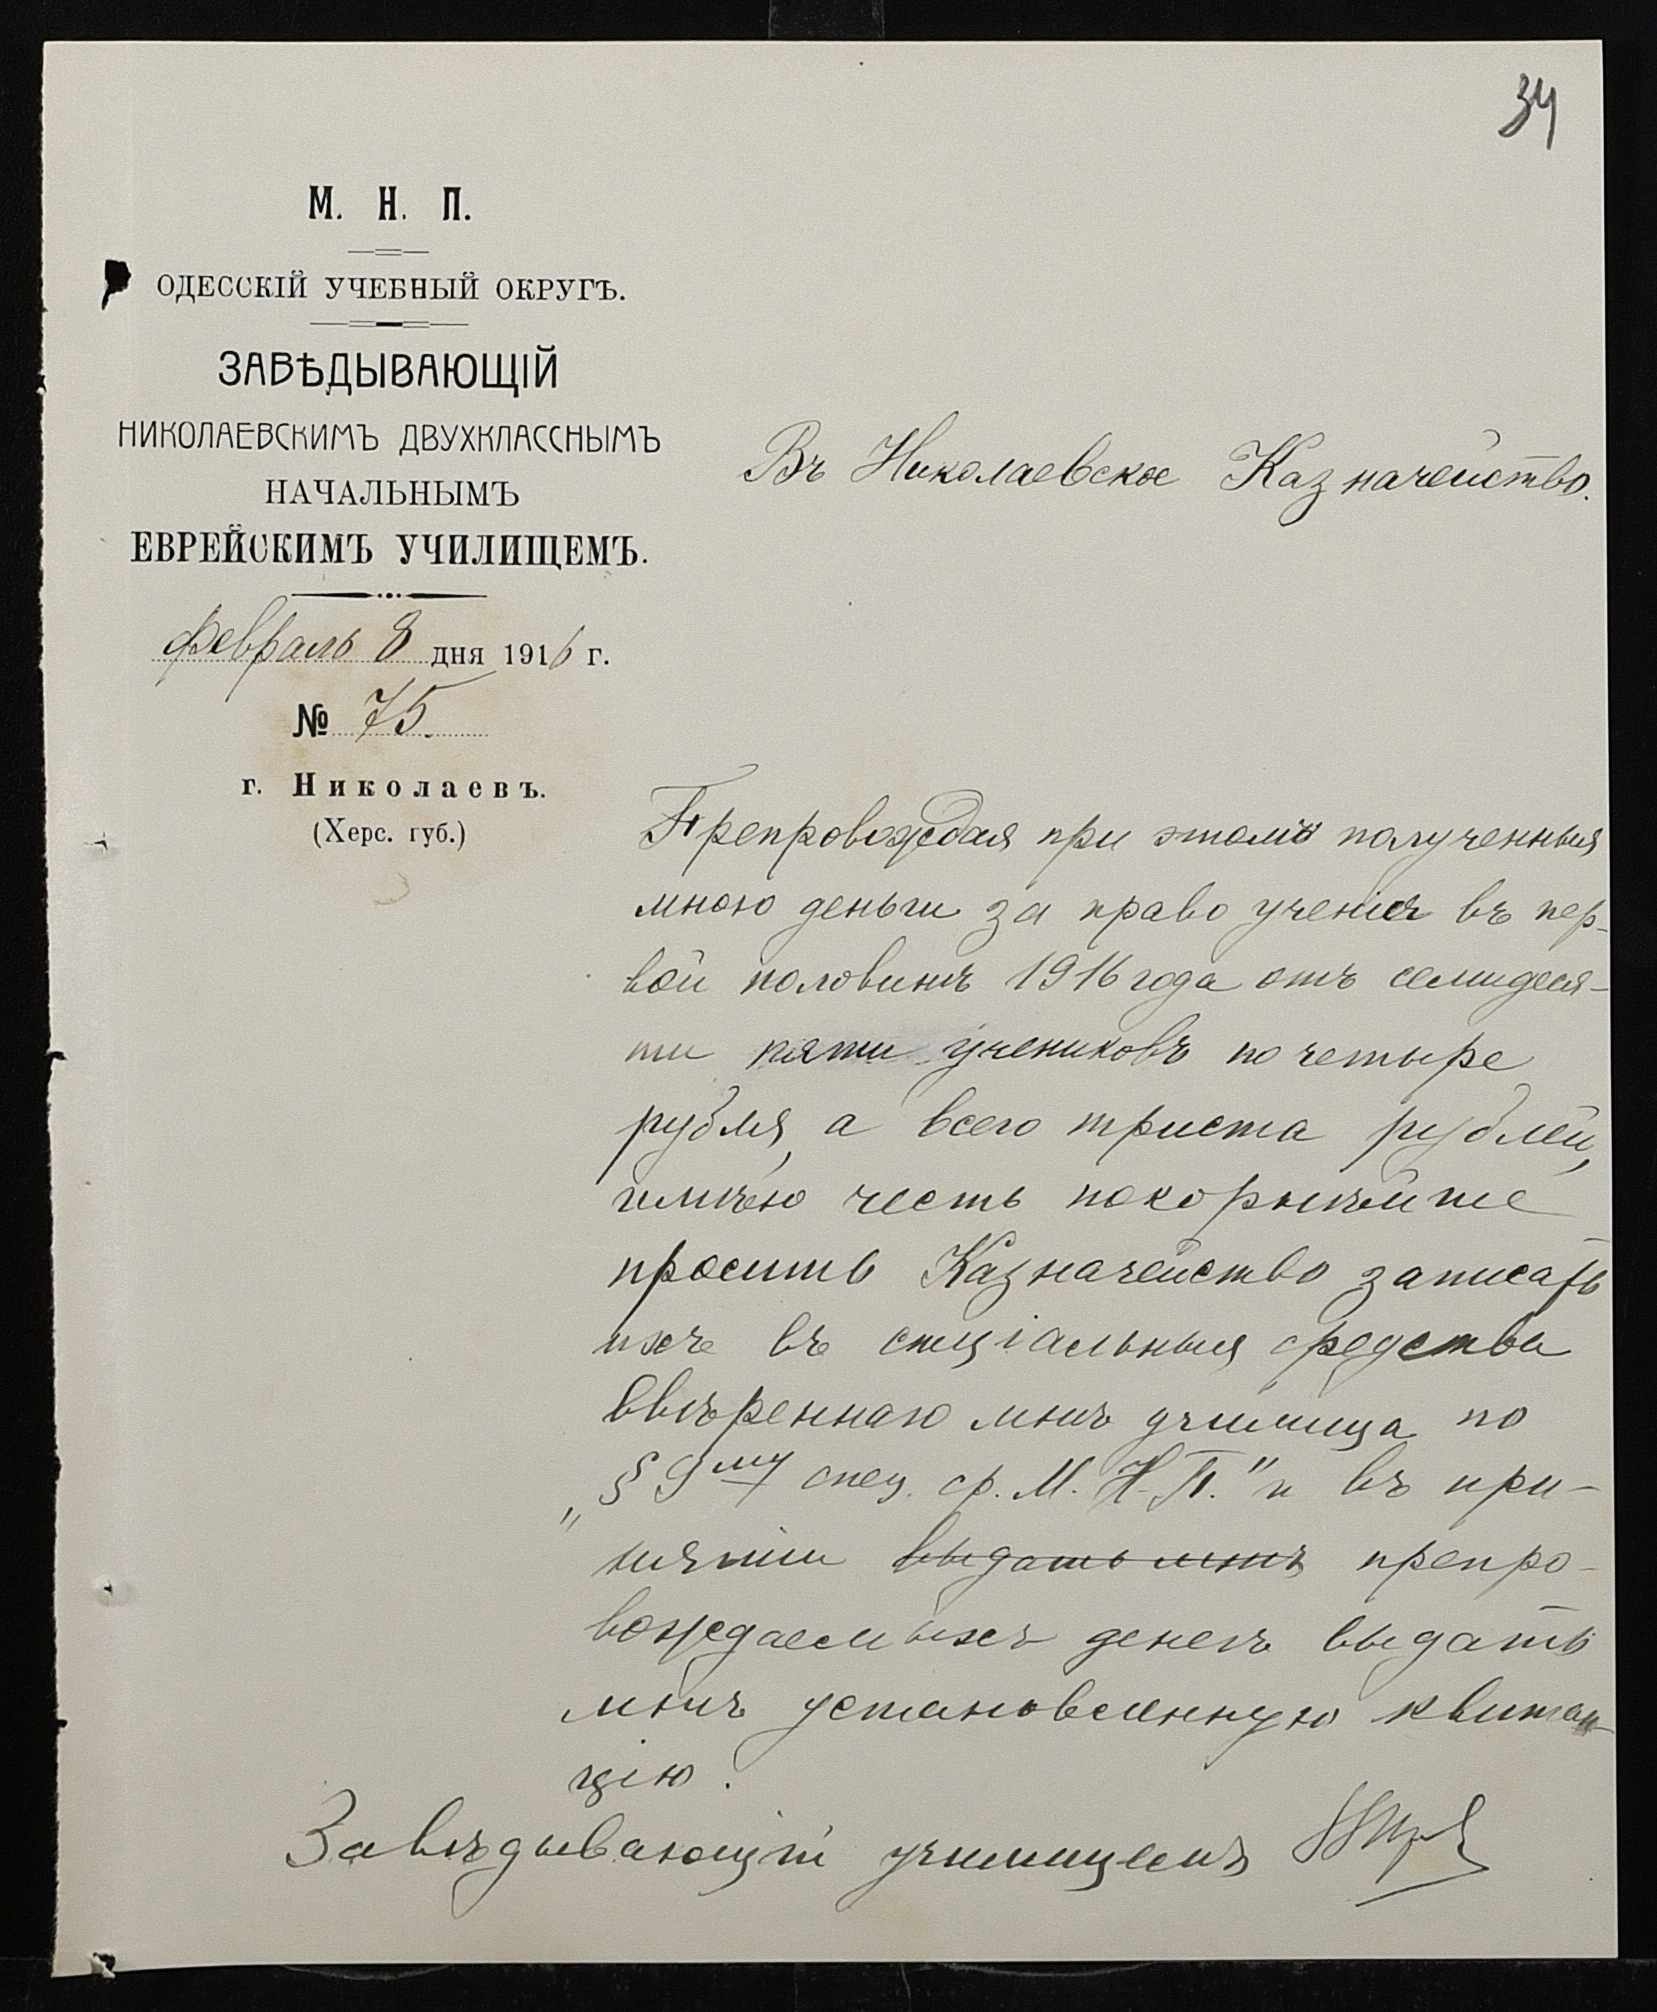 34
М. Н. П.
ОДЕССКІЙ УЧЕБНЫЙ ОКРУГЪ.
ЗАВѢДЫВАЮЩІЙ
НИКОЛАЕВСКИМЪ ДВУХКЛАССНЫМЪ
НАЧАЛЬНЫМЪ
ЕВРЕЙСКИМЪ УЧИЛИЩЕМЪ.
Февраль 8 дня 1916 г.
№ 75.
г. Николаевъ.
(Херс. губ.)
Въ Николаевское Казначейство.
Препровождая при этомъ полученныя
мною деньги за право ученія въ пер-
вой половинѣ 1916 года отъ семидеся-
ти пяти учениковъ по четыре
рубля, а всего триста рублей,
имѣю честь покорнѣйше
просить Казначейство записать
ихъ въ спеціальныя средства
ввѣреннаго мнѣ училища по
„§ 9му спец. ср. М. Н. П." и въ при-
нятіи выдать мнѣ препро-
вождаемыхъ денегъ выдать
мнѣ установленную квитан-
цію.
Завѣдывающій училищемъ